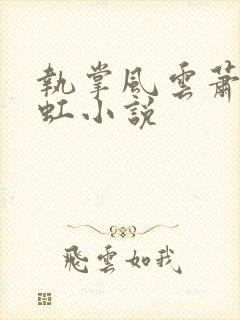 執掌風雲蕭
虹小說
飛雲如我